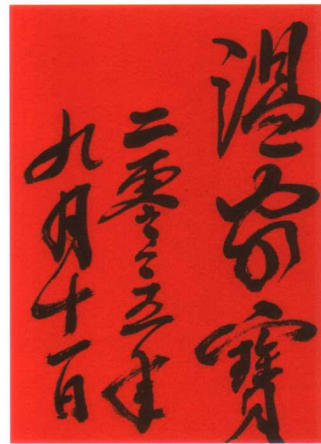 温家寶
二零零五年
九月十一日